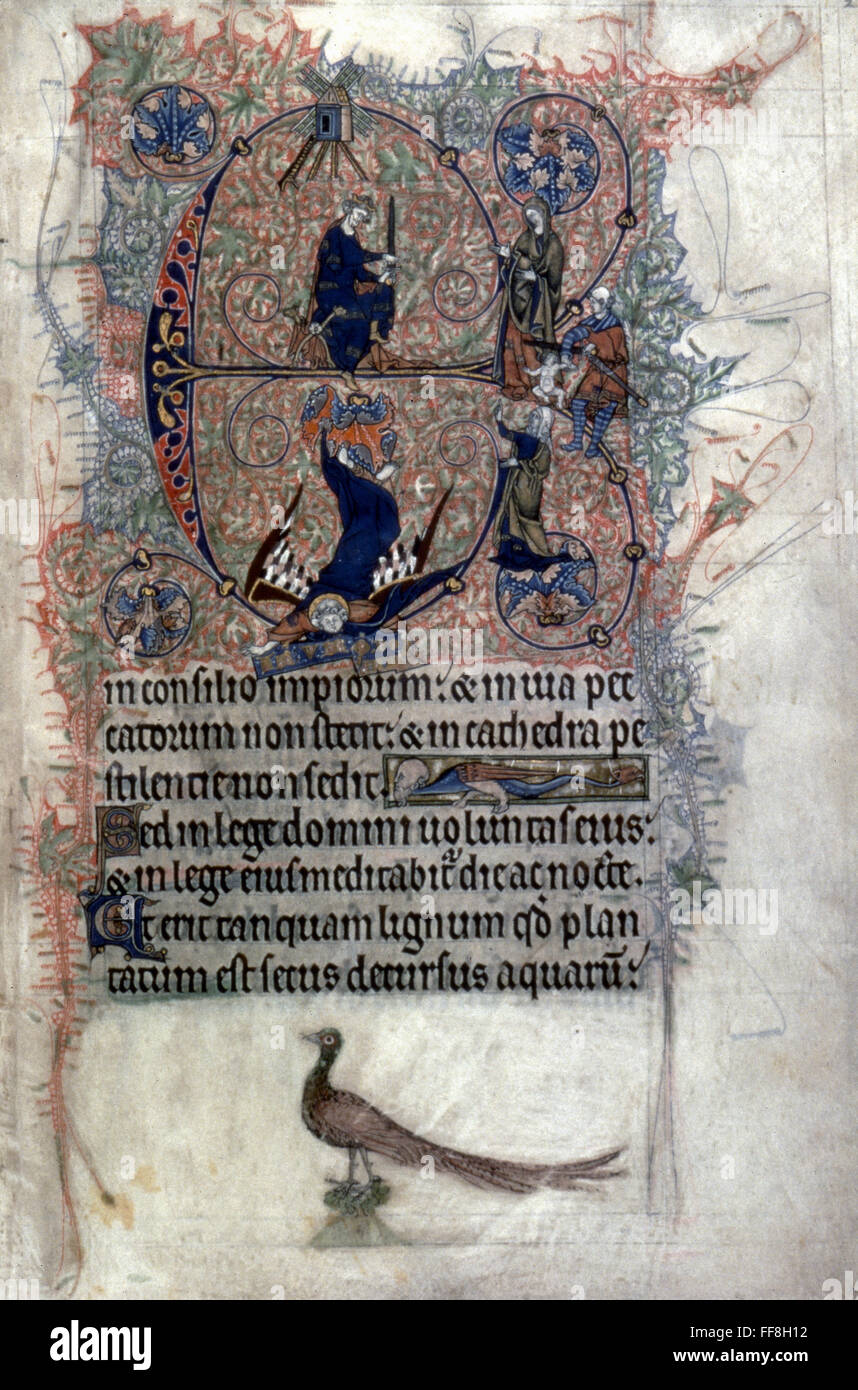 in consilio impiorum: & in uia pec
catorum non stetit: & in cathedra pe
stilencie non sedit.
Sed in lege domini uoluntas eius:
& in lege eius meditabit die ac nocte.
Et erit tanquam lignum qd plan
tatum est secus decursus aquarū:
alamy
alamy
a
Image ID: FF8H12
www.alamy.com